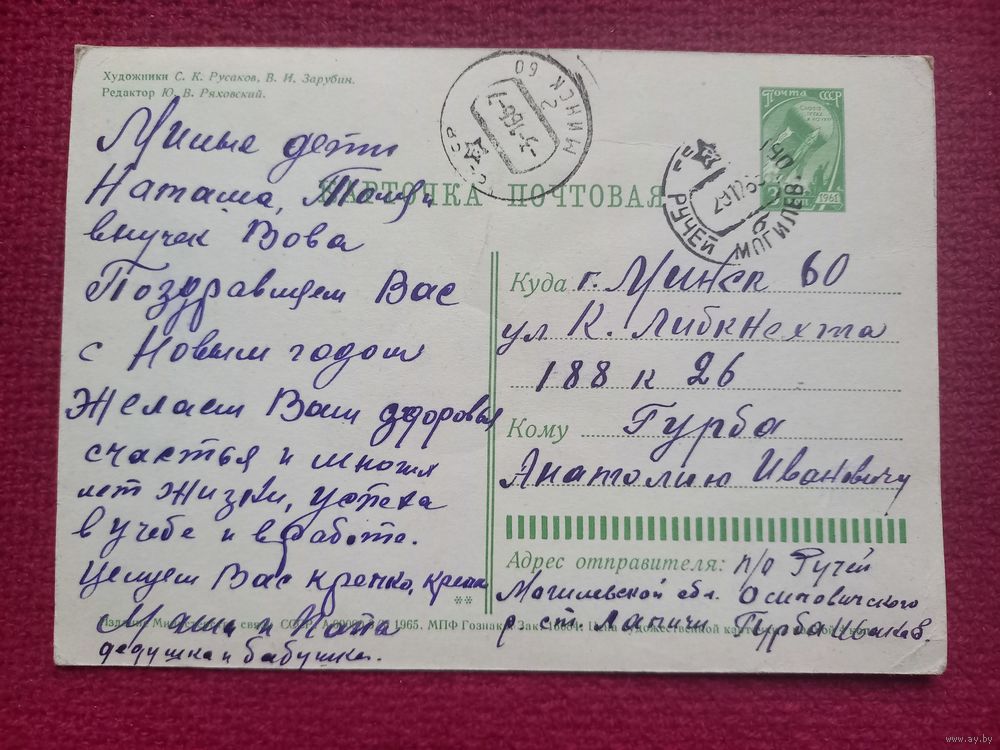 Художники С. К. Русаков, В. И. Зарубин.
Редактор Ю. В. Ряховский.
Милые дети
Наташа, Толя и
внучек Вова
Поздравляем Вас
с Новым годом
Желаем Вам здоровья
счастья и многих
лет жизни, успеха
в учебе и в работе.
Целуем Вас крепко, крепко
Мама и Папа
дедушка и бабушка.
КАРТОЧКА ПОЧТОВАЯ
МИНСК 60
ПОЧТА СССР
1961
РУЧЕЙ МОГИЛЕВ
Куда г. Минск 60
ул К. Либкнехта
188 к 26
Кому Гурба
Анатолию Ивановичу
Адрес отправителя: п/о Ручей
Могилевской обл. Осиповичского
р ст. Лапичи Гурба
**
Издание Министерства связи СССР. 1965. МПФ Гознака. Зак.
www.ay.by